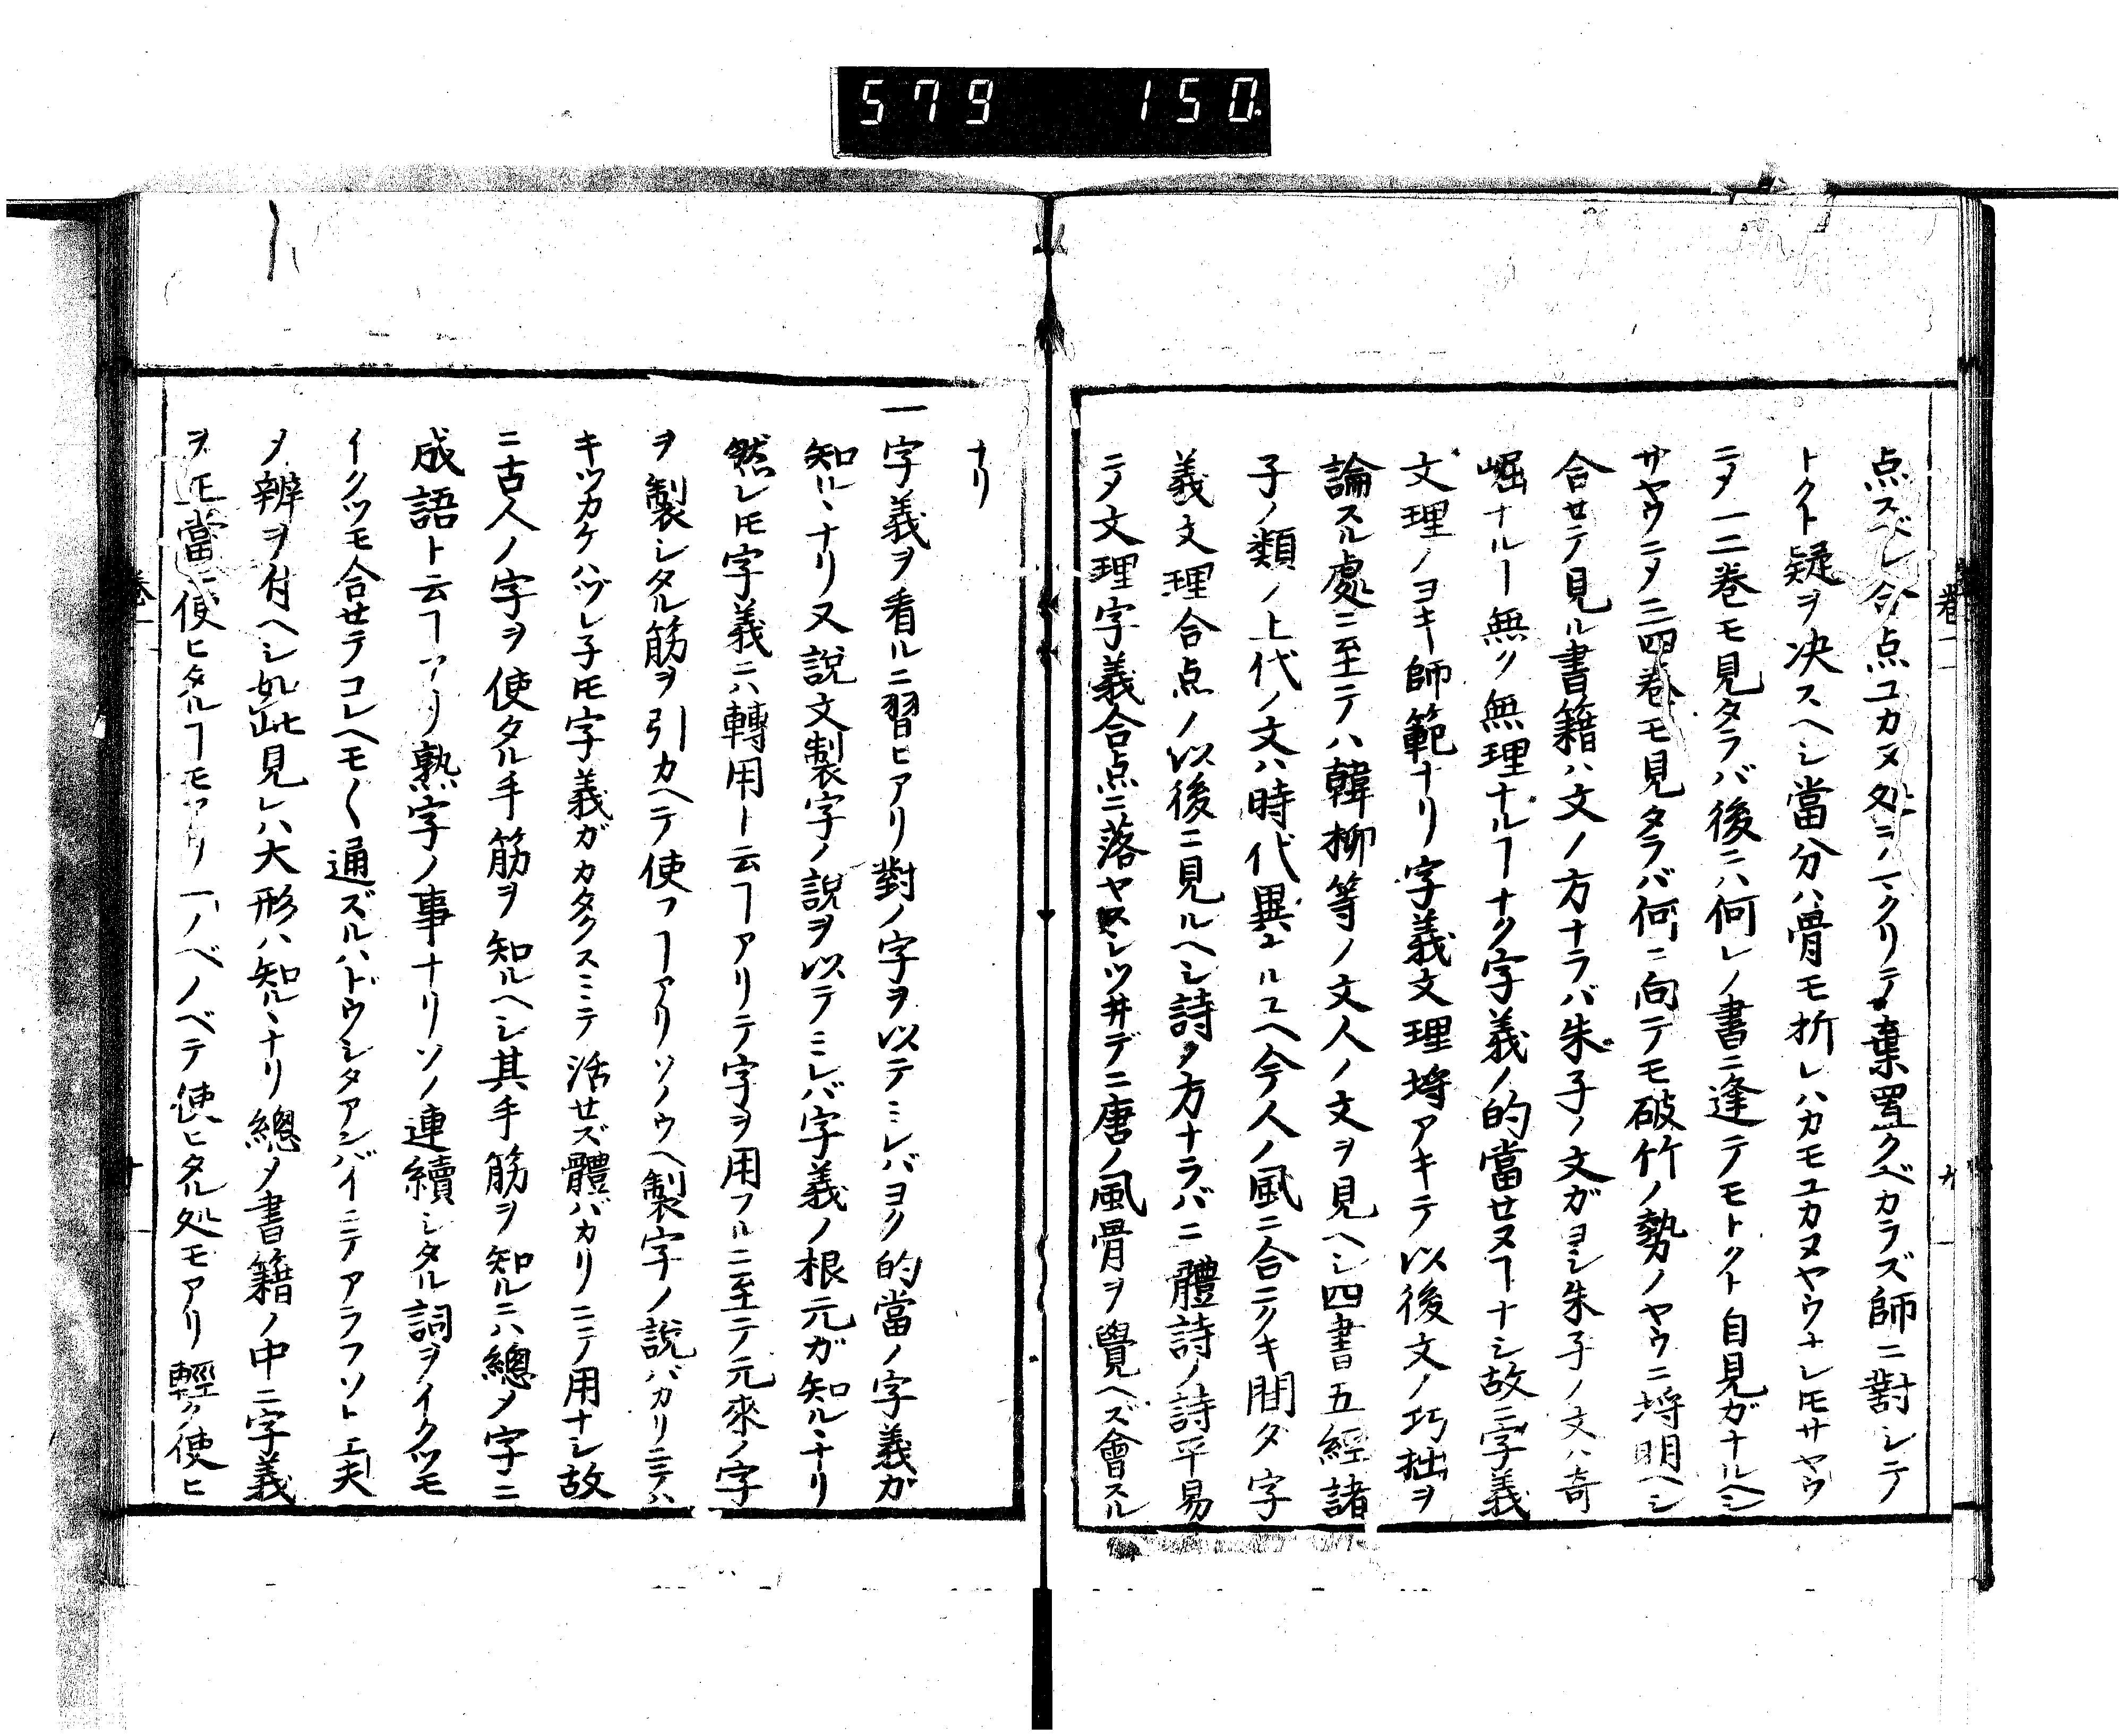 579 150
卷一
九
点スベシ合点ユカヌ処ヲノヽクリテ棄置クベカラズ師ニ對シテ
トクト疑ヲ决スヘシ當分ハ骨モ折レハカモユカヌヤウナレ𪜈サヤウ
ニ〆一二巻モ見タラバ後ニハ何レノ書ニ逢テモトクト自見ガナルヘシ
サヤウニ〆三四巻モ見タラバ何ニ向テモ破竹ノ勢ノヤウニ埒明ヘシ
合セテ見ル書籍ハ文ノ方ナラバ朱子ノ文ガヨシ朱子ノ文ハ奇
崛ナルヿ無ク無理ナルヿナク字義ノ的當セヌヿナシ故ニ字義
文理ノヨキ師範ナリ字義文理埒アキテ以後文ノ巧拙ヲ
論スル處ニ至テハ韓柳等ノ文人ノ文ヲ見ヘシ四書五經諸
子ノ類ノ上代ノ文ハ時代異ナルユヘ今人ノ風ニ合ニクキ間タ字
義文理合点ノ以後ニ見ルヘシ詩ノ方ナラバ三體詩ノ詩平易
ニ〆文理字義合点ニ落ヤスシツ井デニ唐ノ風骨ヲ覺ヘズ會スル
ナリ
一字義ヲ看ルニ習ヒアリ對ノ字ヲ以テミレバヨク的當ノ字義ガ
知ルヽナリ又說文製字ノ說ヲ以テミレバ字義ノ根元ガ知ルヽナリ
然レ𪜈字義ニハ轉用ト云ヿアリテ字ヲ用フルニ至テ元來ノ字
ヲ製シタル筋ヲ引カヘテ使フヿアリソノウヘ製字ノ說バカリニテハ
キツカケハヅレ子𪜈字義ガカタクスミテ活セズ體バカリニテ用ナシ故
ニ古人ノ字ヲ使タル手筋ヲ知ルヘシ其手筋ヲ知ルニハ總〆字ニ
成語ト云ヿアリ熟字ノ事ナリソノ連續シタル詞ヲイクツモ
イクツモ合せテコレヘモ〱通ズルハドウシタアンバイニテアラフソト工夫
〆辨ヲ付ヘシ如此見レハ大形ハ知ルヽナリ總〆書籍ノ中ニ字義
ヲ正當ニ使ヒタルヿモアリ一ノベノベテ使ヒタル処モアリ輕ク使ヒ
卷一